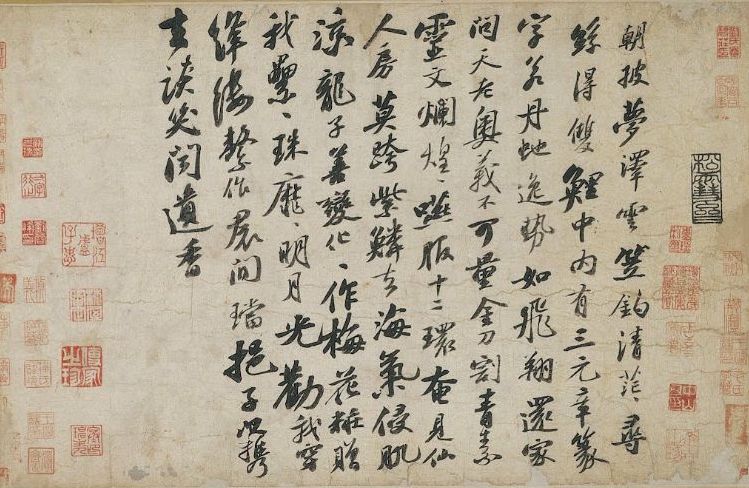 朝披夢澤雲笠釣清茫々尋
絲得雙鯉中內有三元章篆
字若丹蛇逸勢如飛翔還家
問天老奧義不可量金刀割青素
靈文爛煌々嚥服十二環奄見仙
人房莫跨紫鱗去海氣侵肌
涼龍子善變化々作梅花粧贈
我纍々珠靡々明月光勸我穿
絳縷繫作裙間璫挹子以攜
去談笑聞遺香